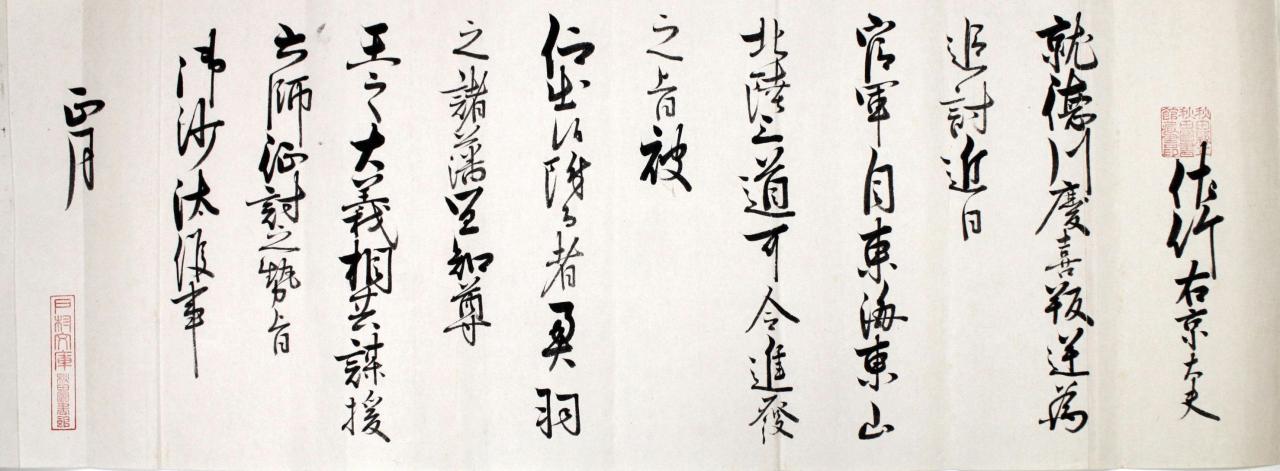 佐竹右京大夫
就德川慶喜叛逆為
追討近日
官軍自東海東山
北陸三道可令進發
之旨被
仰出候附而者奥羽
之諸藩宜知尊
王之大義相共謀援
六師征討之勢旨
御沙汰候事
正月
戸村文庫